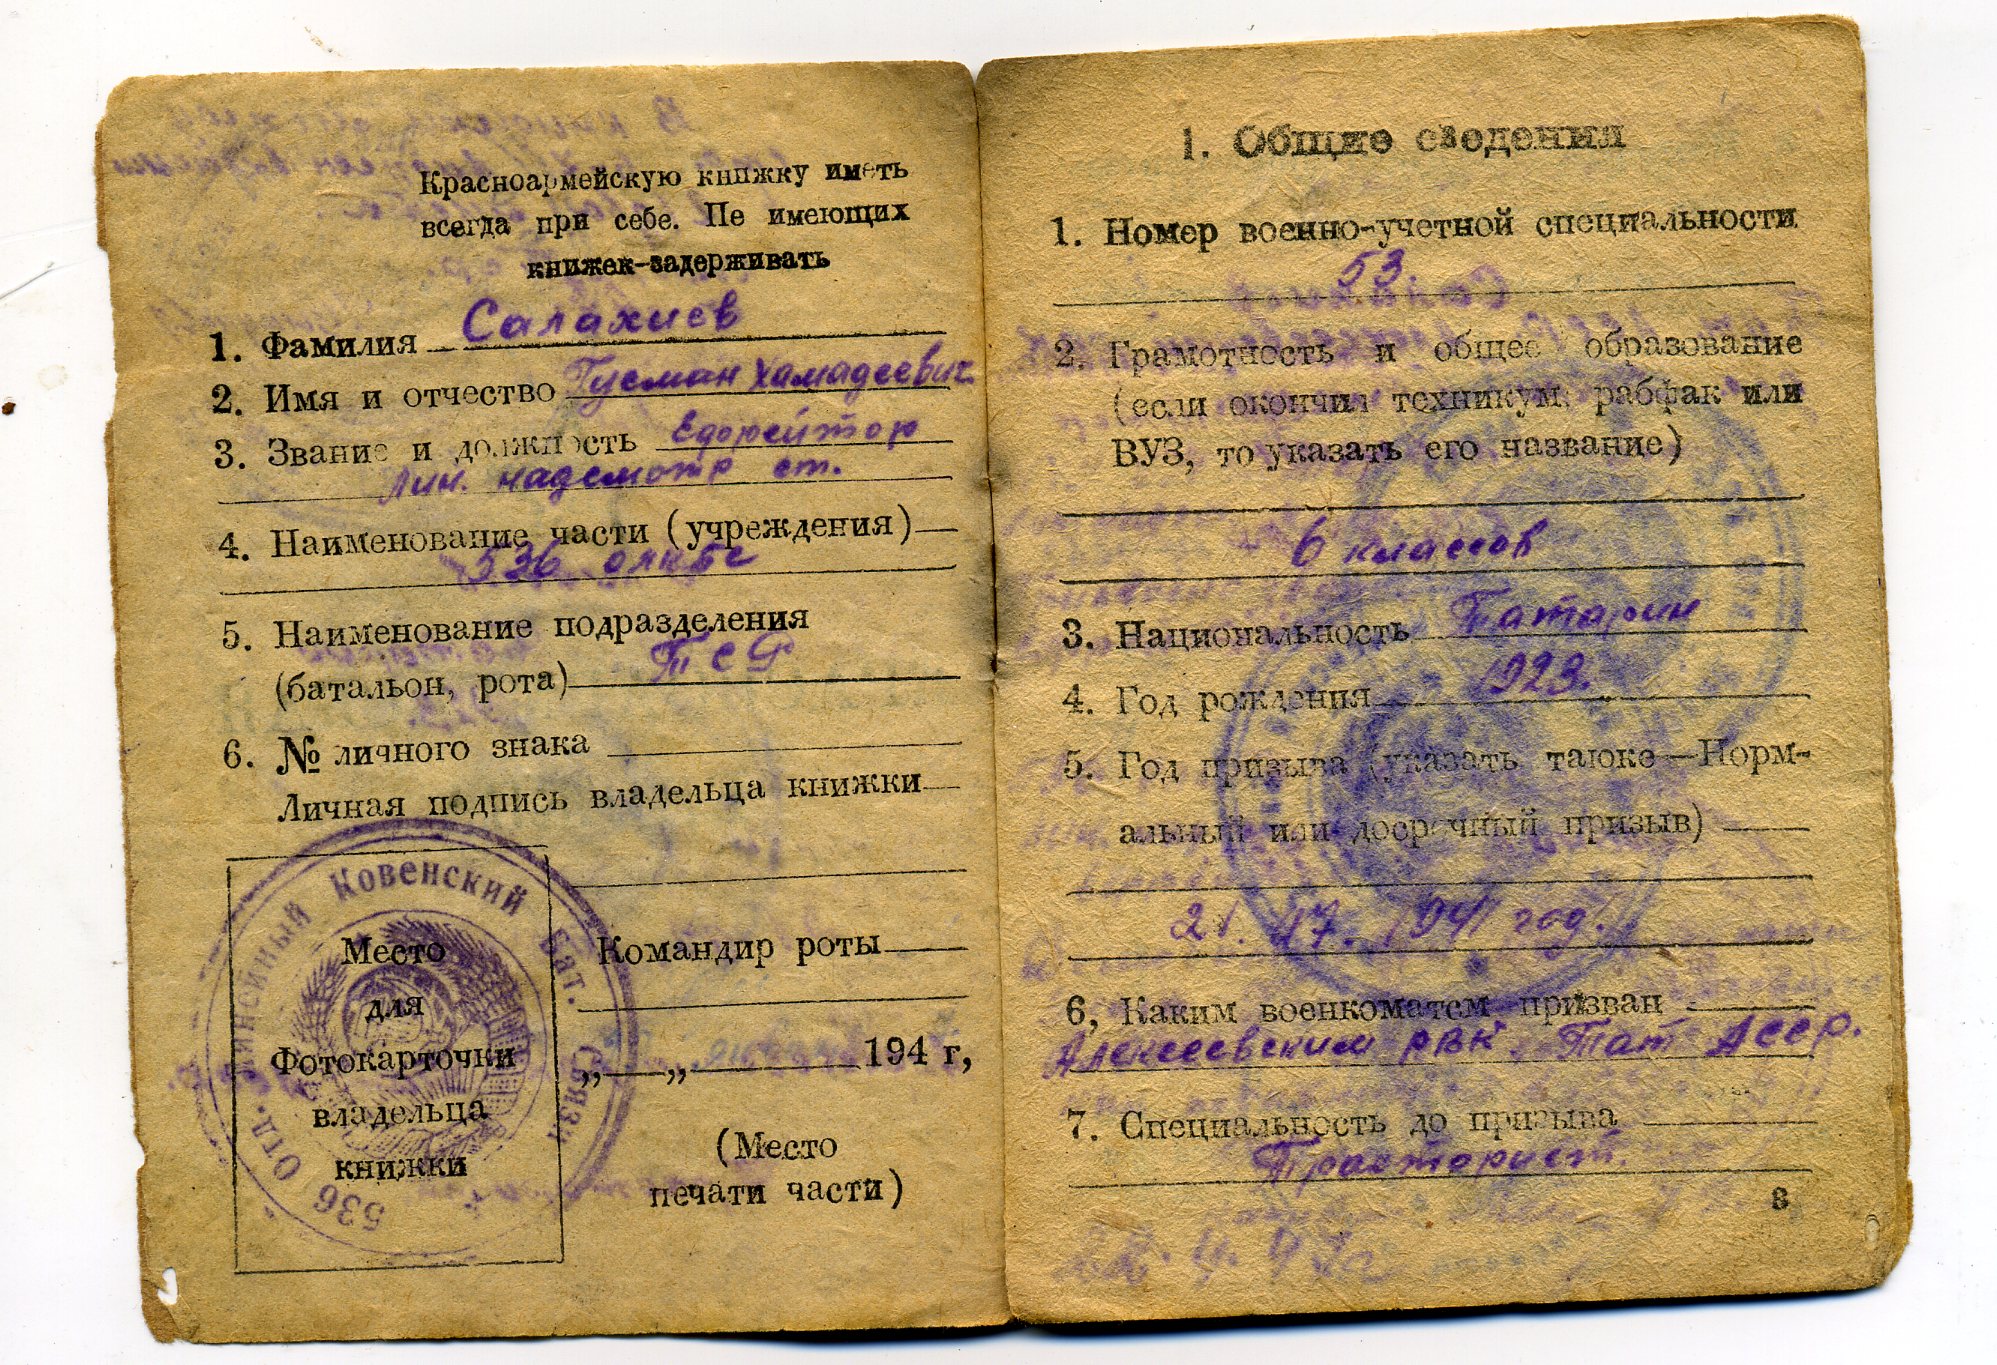 Красноармейскую книжку иметь
всегда при себе. Пе имеющих
книжек-задерживать
1. Фамилия Салахиев
2. Имя и отчество Гусман Хамадеевич
3. Звание и должность Ефрейтор
Лин. надсмотр ст.
4. Наименование части (учреждения)
536
5. Наименование подразделения
(батальон, рота)
6. № личного знака
Личная подпись владельца книжки
Место
для
Фотокарточки
владельца
книжки
536 Отд. Линейный Ковенский Бат. Связи
Командир роты
„ „ 194 г,
(Место
печати части)
1. Общие сведения
1. Номер военно-учетной специальности
53.
2. Грамотность и общее образование
(если окончил техникум, рабфак или
ВУЗ, то указать его название)
6 классов
3. Национальность Татарин
4. Год рождения 1923.
5. Год призыва (указать таюке—Норм-
альный или досрочный призыв)
1941 год.
6, Каким военкоматом призван
Алексеевским РВК Тат АССР.
7. Специальность до призыва
Тракторист.
3